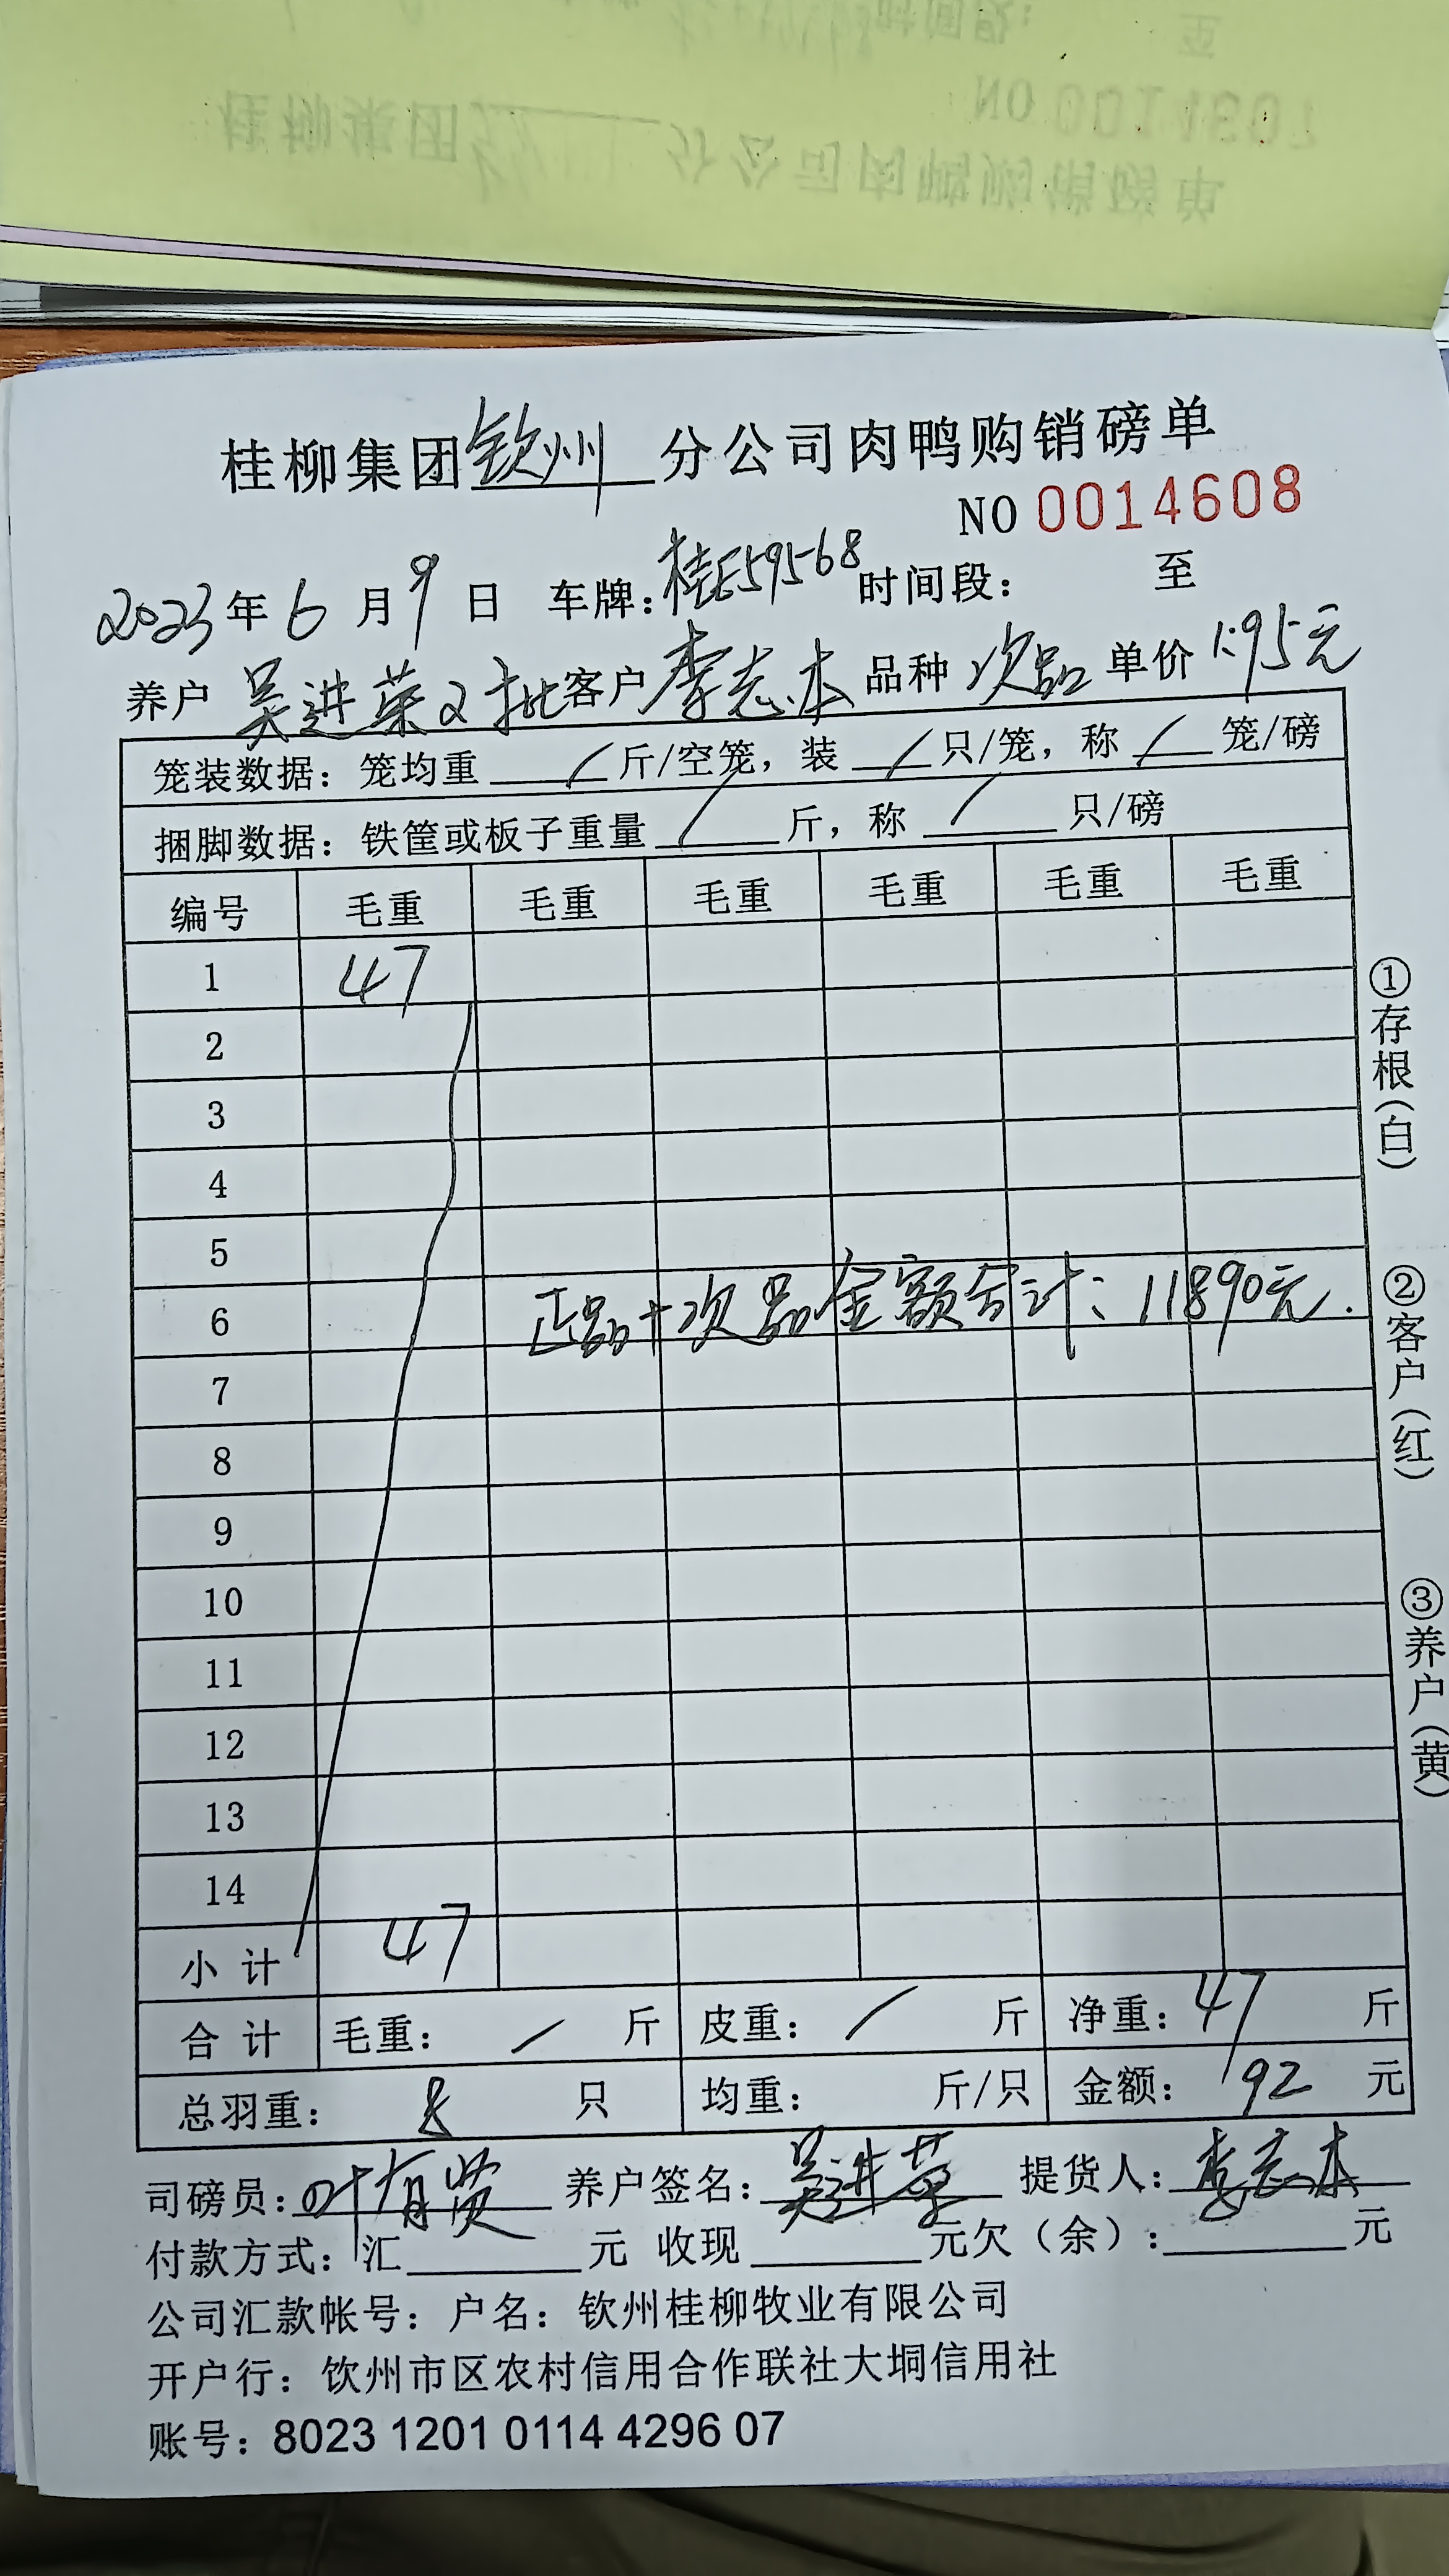 桂柳集团钦州分公司肉鸭购销磅单
NO 0014608
2023年6月9日 车牌:桂E59568 时间段: 至
养户 吴进荣2批 客户 李志本 品种 次品 单价 1.95元
笼装数据: 笼均重 / 斤/空笼, 装 / 只/笼, 称 / 笼/磅
捆脚数据: 铁筐或板子重量 / 斤, 称 / 只/磅
编号 毛重 毛重 毛重 毛重 毛重 毛重
1 47
2
3
4
5
6 正品+次品金额合计: 11890元.
7
8
9
10
11
12
13
14
小计 47
合计 毛重: / 斤 皮重: / 斤 净重: 47 斤
总羽重: 8 只 均重: 斤/只 金额: 92 元
司磅员: 叶有贤 养户签名: 吴进荣 提货人: 李志本
付款方式: 汇 元 收现 元欠(余): 元
公司汇款帐号: 户名: 钦州桂柳牧业有限公司
开户行: 钦州市区农村信用合作联社大垌信用社
账号: 8023 1201 0114 4296 07
①存根(白)
②客户(红)
③养户(黄)